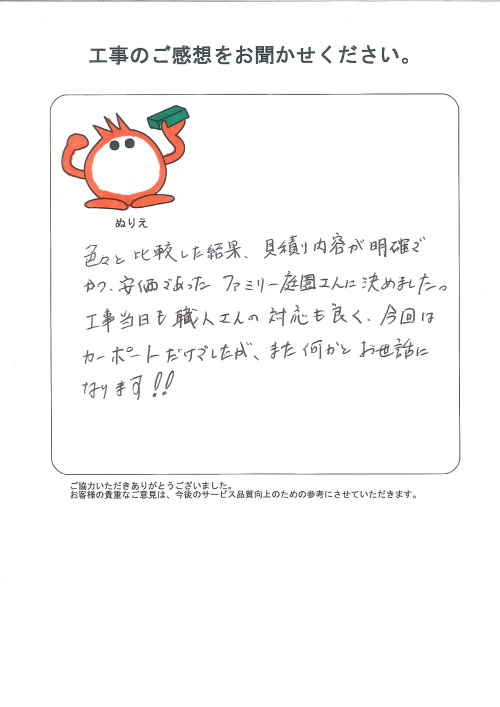 工事のご感想をお聞かせください。
ぬりえ
色々と比較した結果、見積り内容が明確で
かつ、安価であったファミリー庭園さんに決めました。
工事当日も職人さんの対応も良く、今回は
カーポートだけでしたが、また何かとお世話に
なります!!
ご協力いただきありがとうございました。
お客様の貴重なご意見は、今後のサービス品質向上のための参考にさせていただきます。